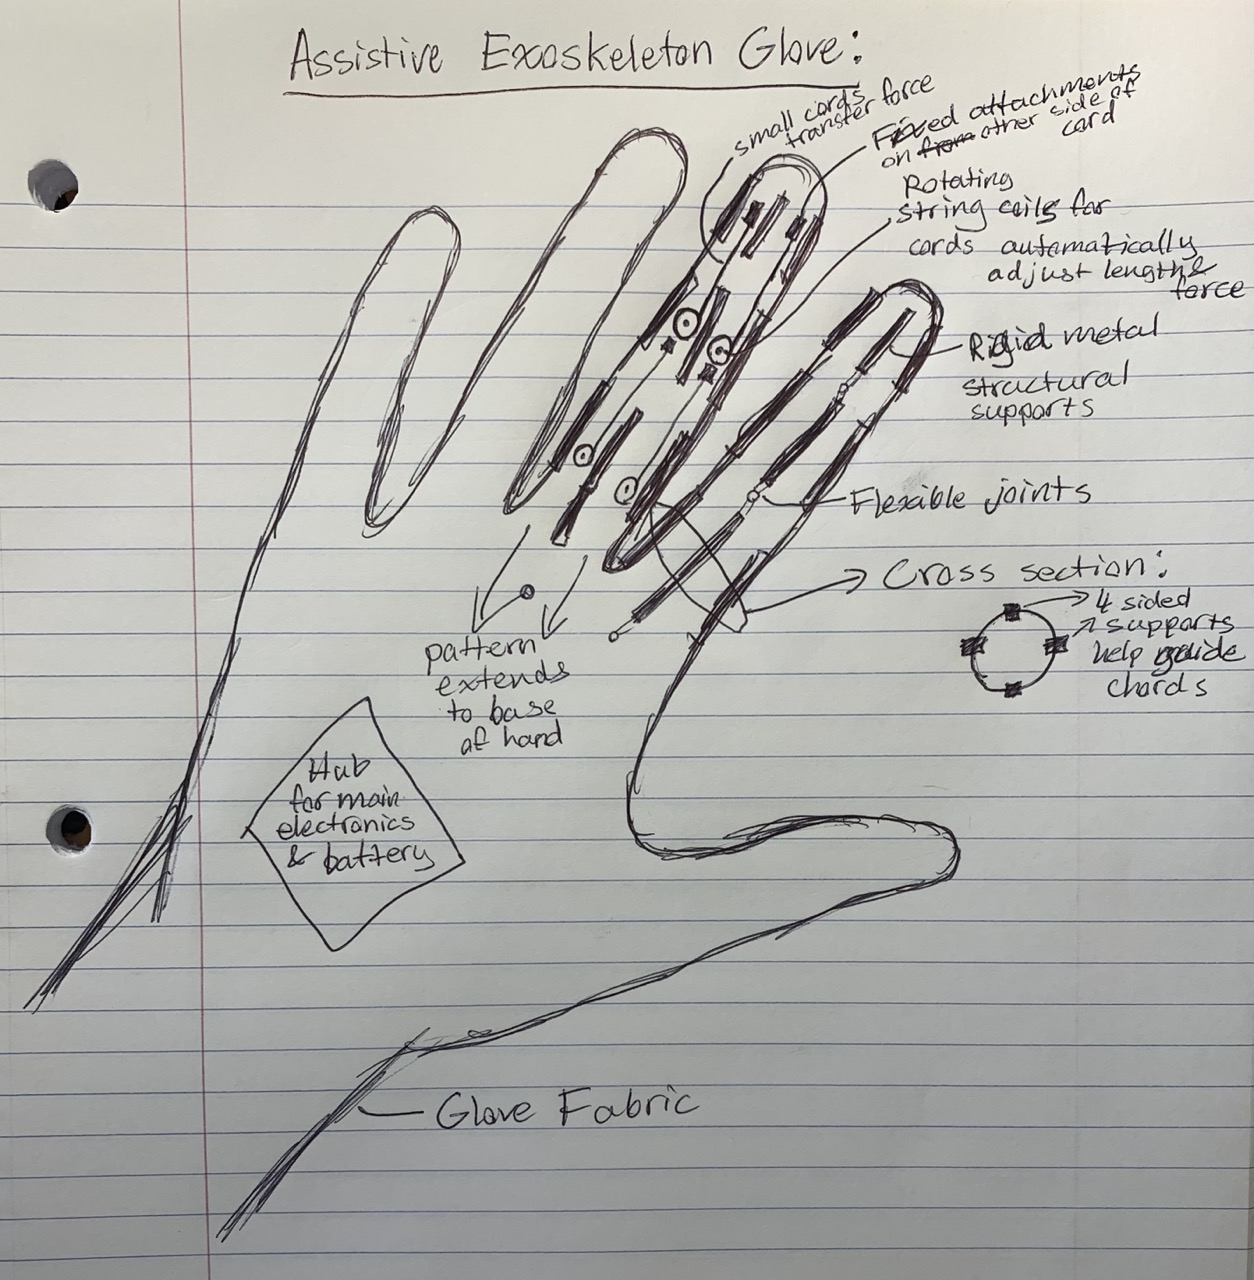 Assistive Exoskeleton Glove:
small cords
transfer force
Fixed attachments
on from other side of
cord
Rotating
string coils for
cords automatically
adjust length &
force
Rigid metal
structural
supports
Flexible joints
Cross section:
4 sided
supports
help guide
chords
pattern
extends
to base
of hand
Hub
for main
electronics
& battery
Glove Fabric